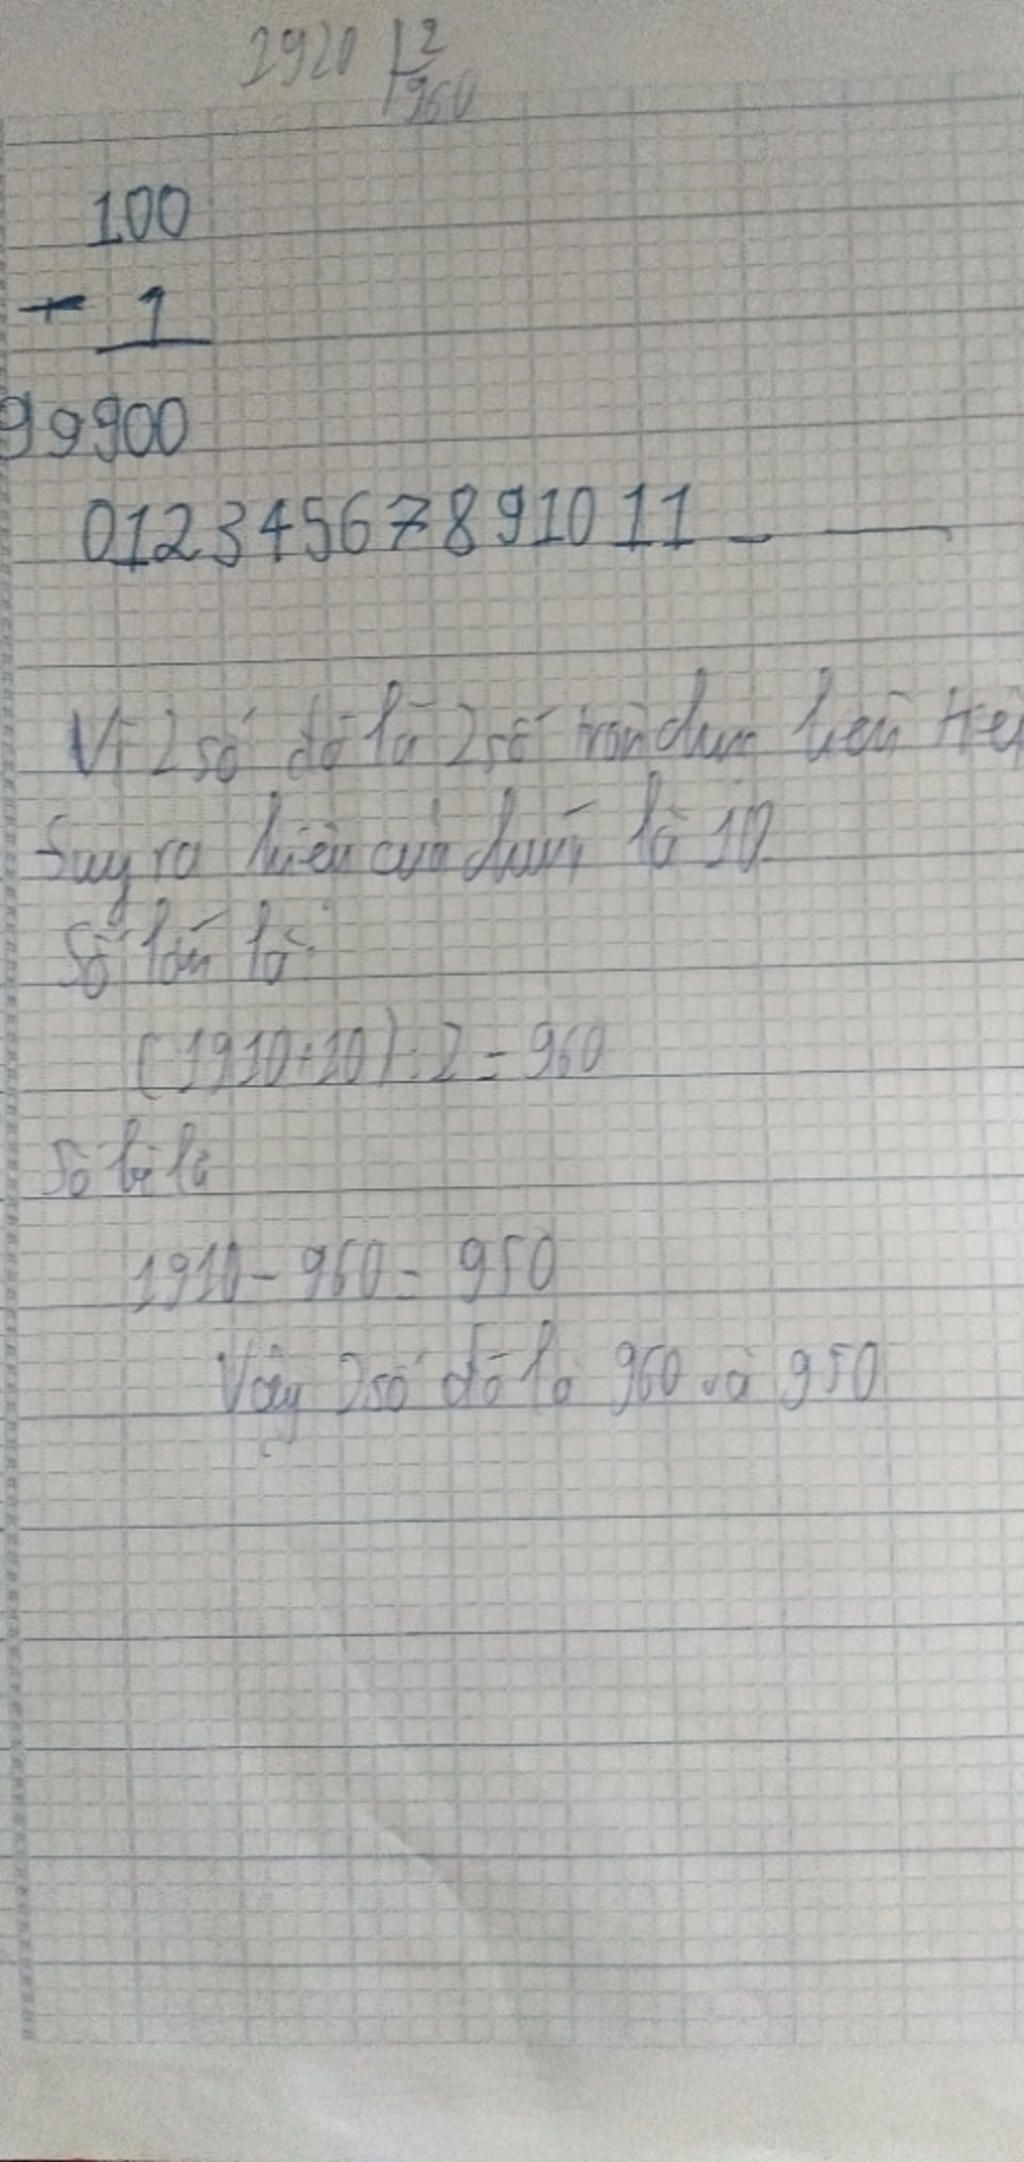 1920 2
960
100
- 1
99900
01234567891011 - —
Vì 2 số đó là 2 số tròn chục liên tiế
Suy ra hiệu của chúng là 10.
Số lớn là:
(1910+10):2=960
Số bé là
1910-960=950
Vậy 2 số đó là 960 và 950